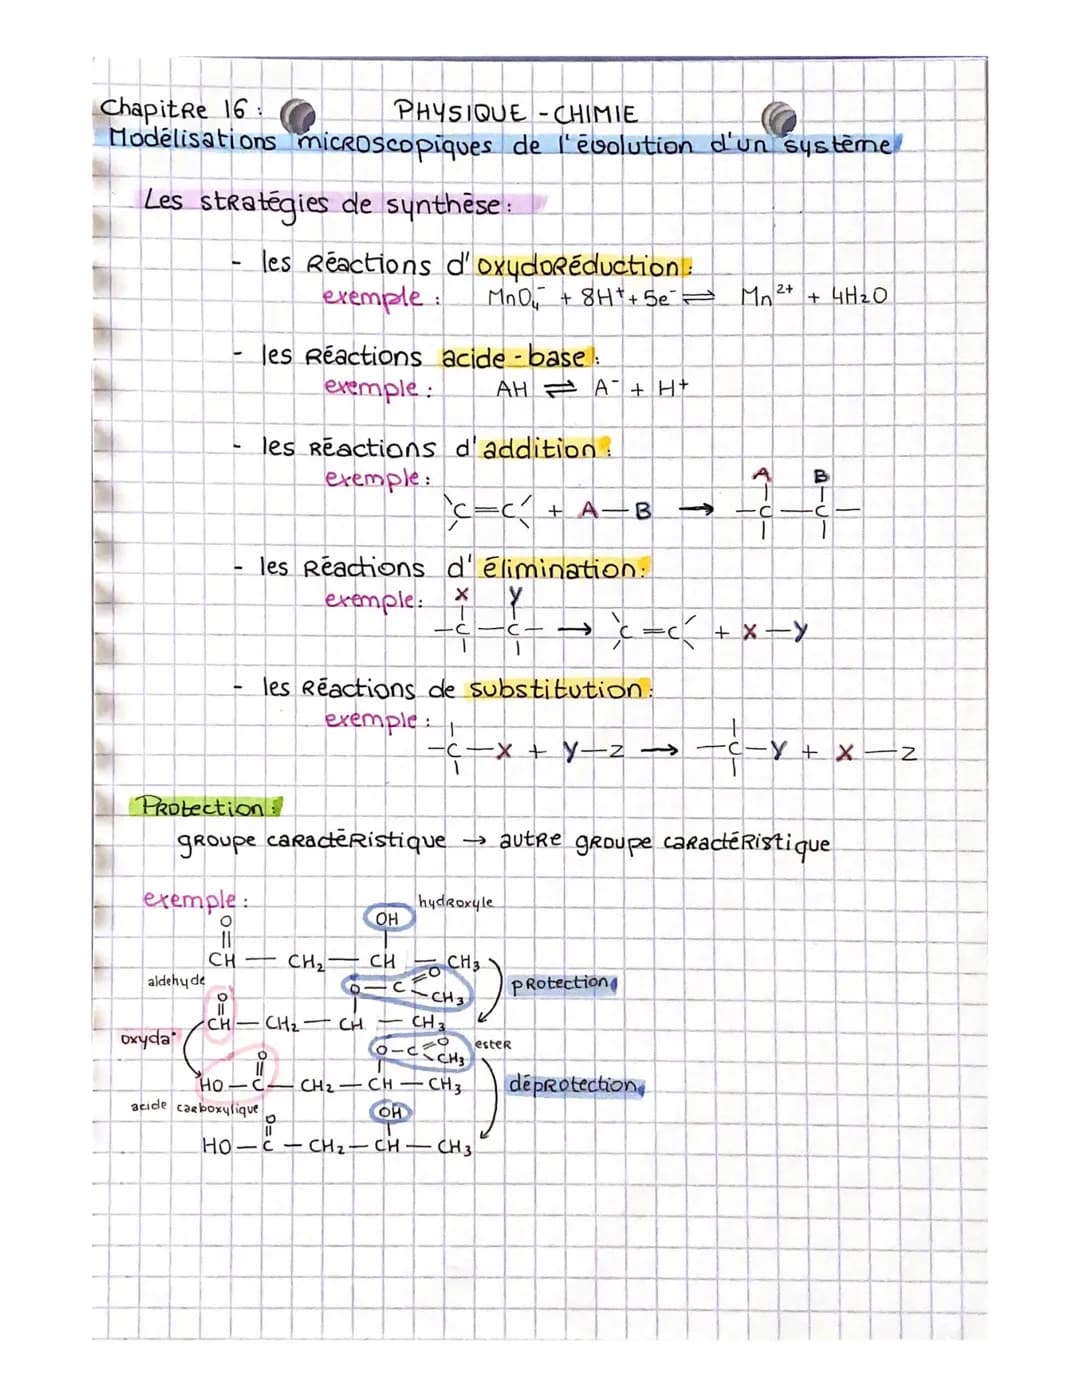 Chapitre 16 :
PHYSIQUE - CHIMIE
Modélisations microscopiques de l'évolution d'un système
Les stratégies de synthèse :
- les Réactions d'oxydoréduction :
exemple : MnO₄⁻ + 8H⁺ + 5e⁻ ⇌ Mn²⁺ + 4H₂O
- les Réactions acide-base :
exemple : AH ⇌ A⁻ + H+
- les Réactions d'addition :
exemple :
A B
C=C + A—B → —C—C—
- les Réactions d'élimination :
exemple : X Y
—C—C— → C=C + X—Y
- les Réactions de substitution :
exemple :
—C—X + Y—Z → —C—Y + X—Z
Protection :
groupe caractéristique → autre groupe caractéristique
exemple :
hydroxyle
O OH
CH — CH₂ — CH — CH₃
aldehyde
O — C =O
CH₃
protection
O
CH — CH₂ — CH — CH₃
oxyda°
O—C =O
CH₃
ester
O
HO — C — CH₂ — CH — CH₃
déprotection
acide carboxylique
O OH
HO — C — CH₂ — CH — CH₃